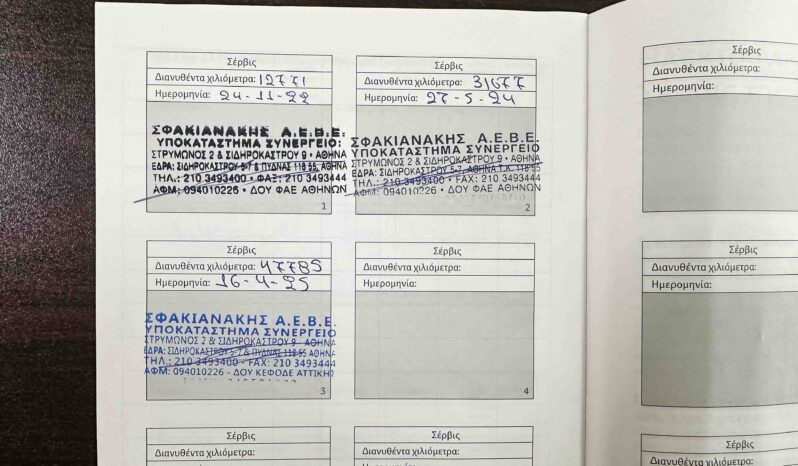 Σέρβις
Διανυθέντα χιλιόμετρα: 12771
Ημερομηνία: 24-11-22
ΣΦΑΚΙΑΝΑΚΗΣ Α.Ε.Β.Ε.
ΥΠΟΚΑΤΑΣΤΗΜΑ ΣΥΝΕΡΓΕΙΟ:
ΣΤΡΥΜΩΝΟΣ 2 & ΣΙΔΗΡΟΚΑΣΤΡΟΥ 9 • ΑΘΗΝΑ
ΕΔΡΑ: ΣΙΔΗΡΟΚΑΣΤΡΟΥ 5-7 & ΠΥΔΝΑΣ 118 55, ΑΘΗΝΑ
ΤΗΛ.: 210 3493400 • ΦΑΞ: 210 3493444
ΑΦΜ: 094010226 • ΔΟΥ ΦΑΕ ΑΘΗΝΩΝ
1
Σέρβις
Διανυθέντα χιλιόμετρα: 31677
Ημερομηνία: 27-5-24
ΣΦΑΚΙΑΝΑΚΗΣ Α.Ε.Β.Ε.
ΥΠΟΚΑΤΑΣΤΗΜΑ ΣΥΝΕΡΓΕΙΟ
ΣΤΡΥΜΩΝΟΣ 2 & ΣΙΔΗΡΟΚΑΣΤΡΟΥ 9 • ΑΘΗΝΑ
ΕΔΡΑ: ΣΙΔΗΡΟΚΑΣΤΡΟΥ 5-7, ΑΘΗΝΑ Τ.Κ. 118 55
ΤΗΛ.: 210 3493400 • FAX: 210 3493444
ΑΦΜ: 094010226 • ΔΟΥ ΦΑΕ ΑΘΗΝΩΝ
2
Σέρβις
Διανυθέντα χιλιόμετρα:
Ημερομηνία:
Σέρβις
Διανυθέντα χιλιόμετρα: 47785
Ημερομηνία: 16-4-25
ΣΦΑΚΙΑΝΑΚΗΣ Α.Ε.Β.Ε.
ΥΠΟΚΑΤΑΣΤΗΜΑ ΣΥΝΕΡΓΕΙΟ
ΣΤΡΥΜΩΝΟΣ 2 & ΣΙΔΗΡΟΚΑΣΤΡΟΥ 9 - ΑΘΗΝΑ
ΕΔΡΑ: ΣΙΔΗΡΟΚΑΣΤΡΟΥ 5-7 & ΠΥΔΝΑΣ 118 55 ΑΘΗΝΑ
ΤΗΛ.: 210 3493400 - FAX: 210 3493444
ΑΦΜ: 094010226 - ΔΟΥ ΚΕΦΟΔΕ ΑΤΤΙΚΗΣ
3
Σέρβις
Διανυθέντα χιλιόμετρα:
Ημερομηνία:
4
Σέρβις
Διανυθέντα χιλιόμετρα:
Ημερομηνία:
Σέρβις
Διανυθέντα χιλιόμετρα:
Ημερομηνία:
Σέρβις
Διανυθέντα χιλιόμετρα:
Ημερομηνία:
Σέρβις
Διανυθέντα χιλιόμετρα: